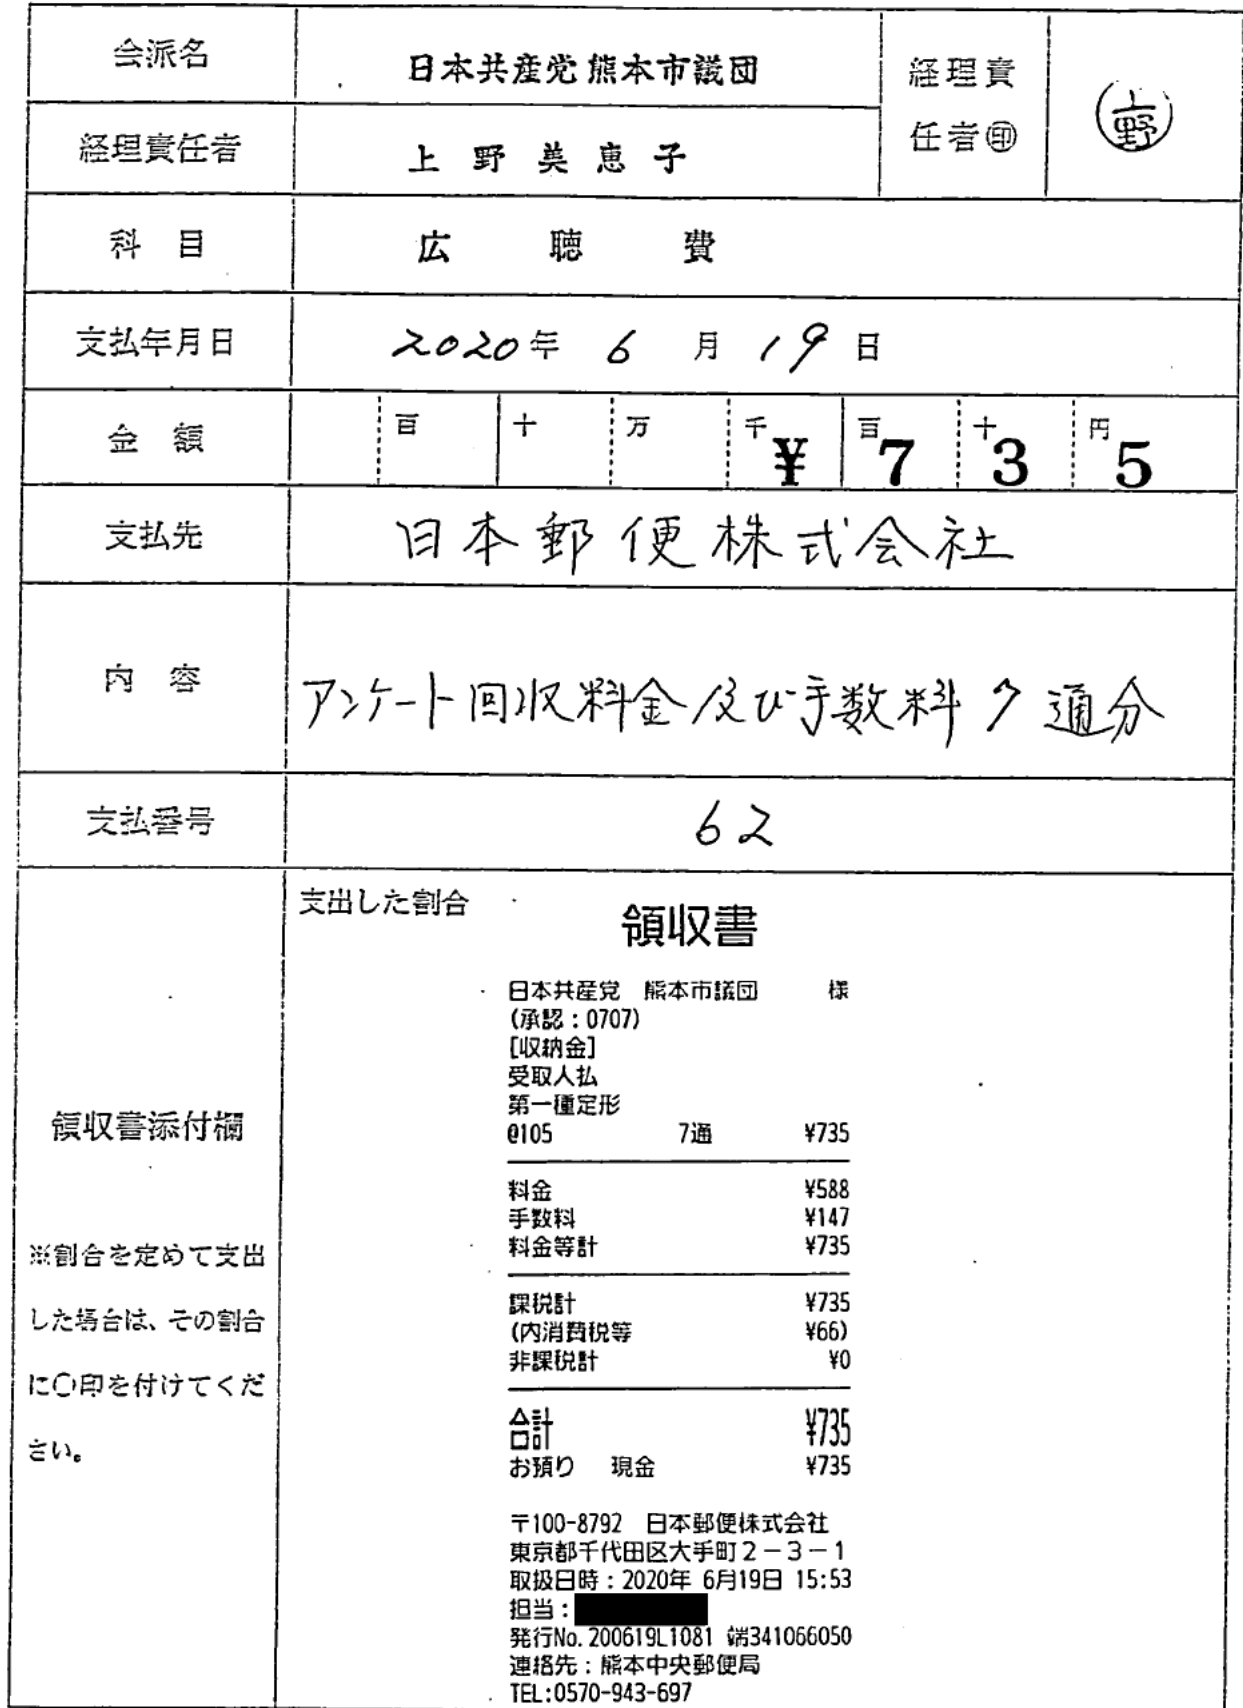 会派名
日本共産党熊本市議団
経理責
任者㊞
上野
経理責任者
上野美恵子
科目
広聴費
支払年月日
2020年 6月 19日
金額
百 十 万 千 百 十 円
¥735
支払先
日本郵便株式会社
内容
アンケート回収料金及び手数料 7通分
支払番号
62
領収書添付欄
※割合を定めて支出
した場合は、その割合
に〇印を付けてくだ
さい。
支出した割合
領収書
日本共産党 熊本市議団 様
(承認：0707)
[収納金]
受取人払
第一種定形
@105 7通 ¥735
料金 ¥588
手数料 ¥147
料金等計 ¥735
課税計 ¥735
(内消費税等 ¥66)
非課税計 ¥0
合計 ¥735
お預り 現金 ¥735
〒100-8792 日本郵便株式会社
東京都千代田区大手町２－３－１
取扱日時：2020年 6月19日 15:53
担当：
発行No. 200619L1081 端341066050
連絡先：熊本中央郵便局
TEL:0570-943-697